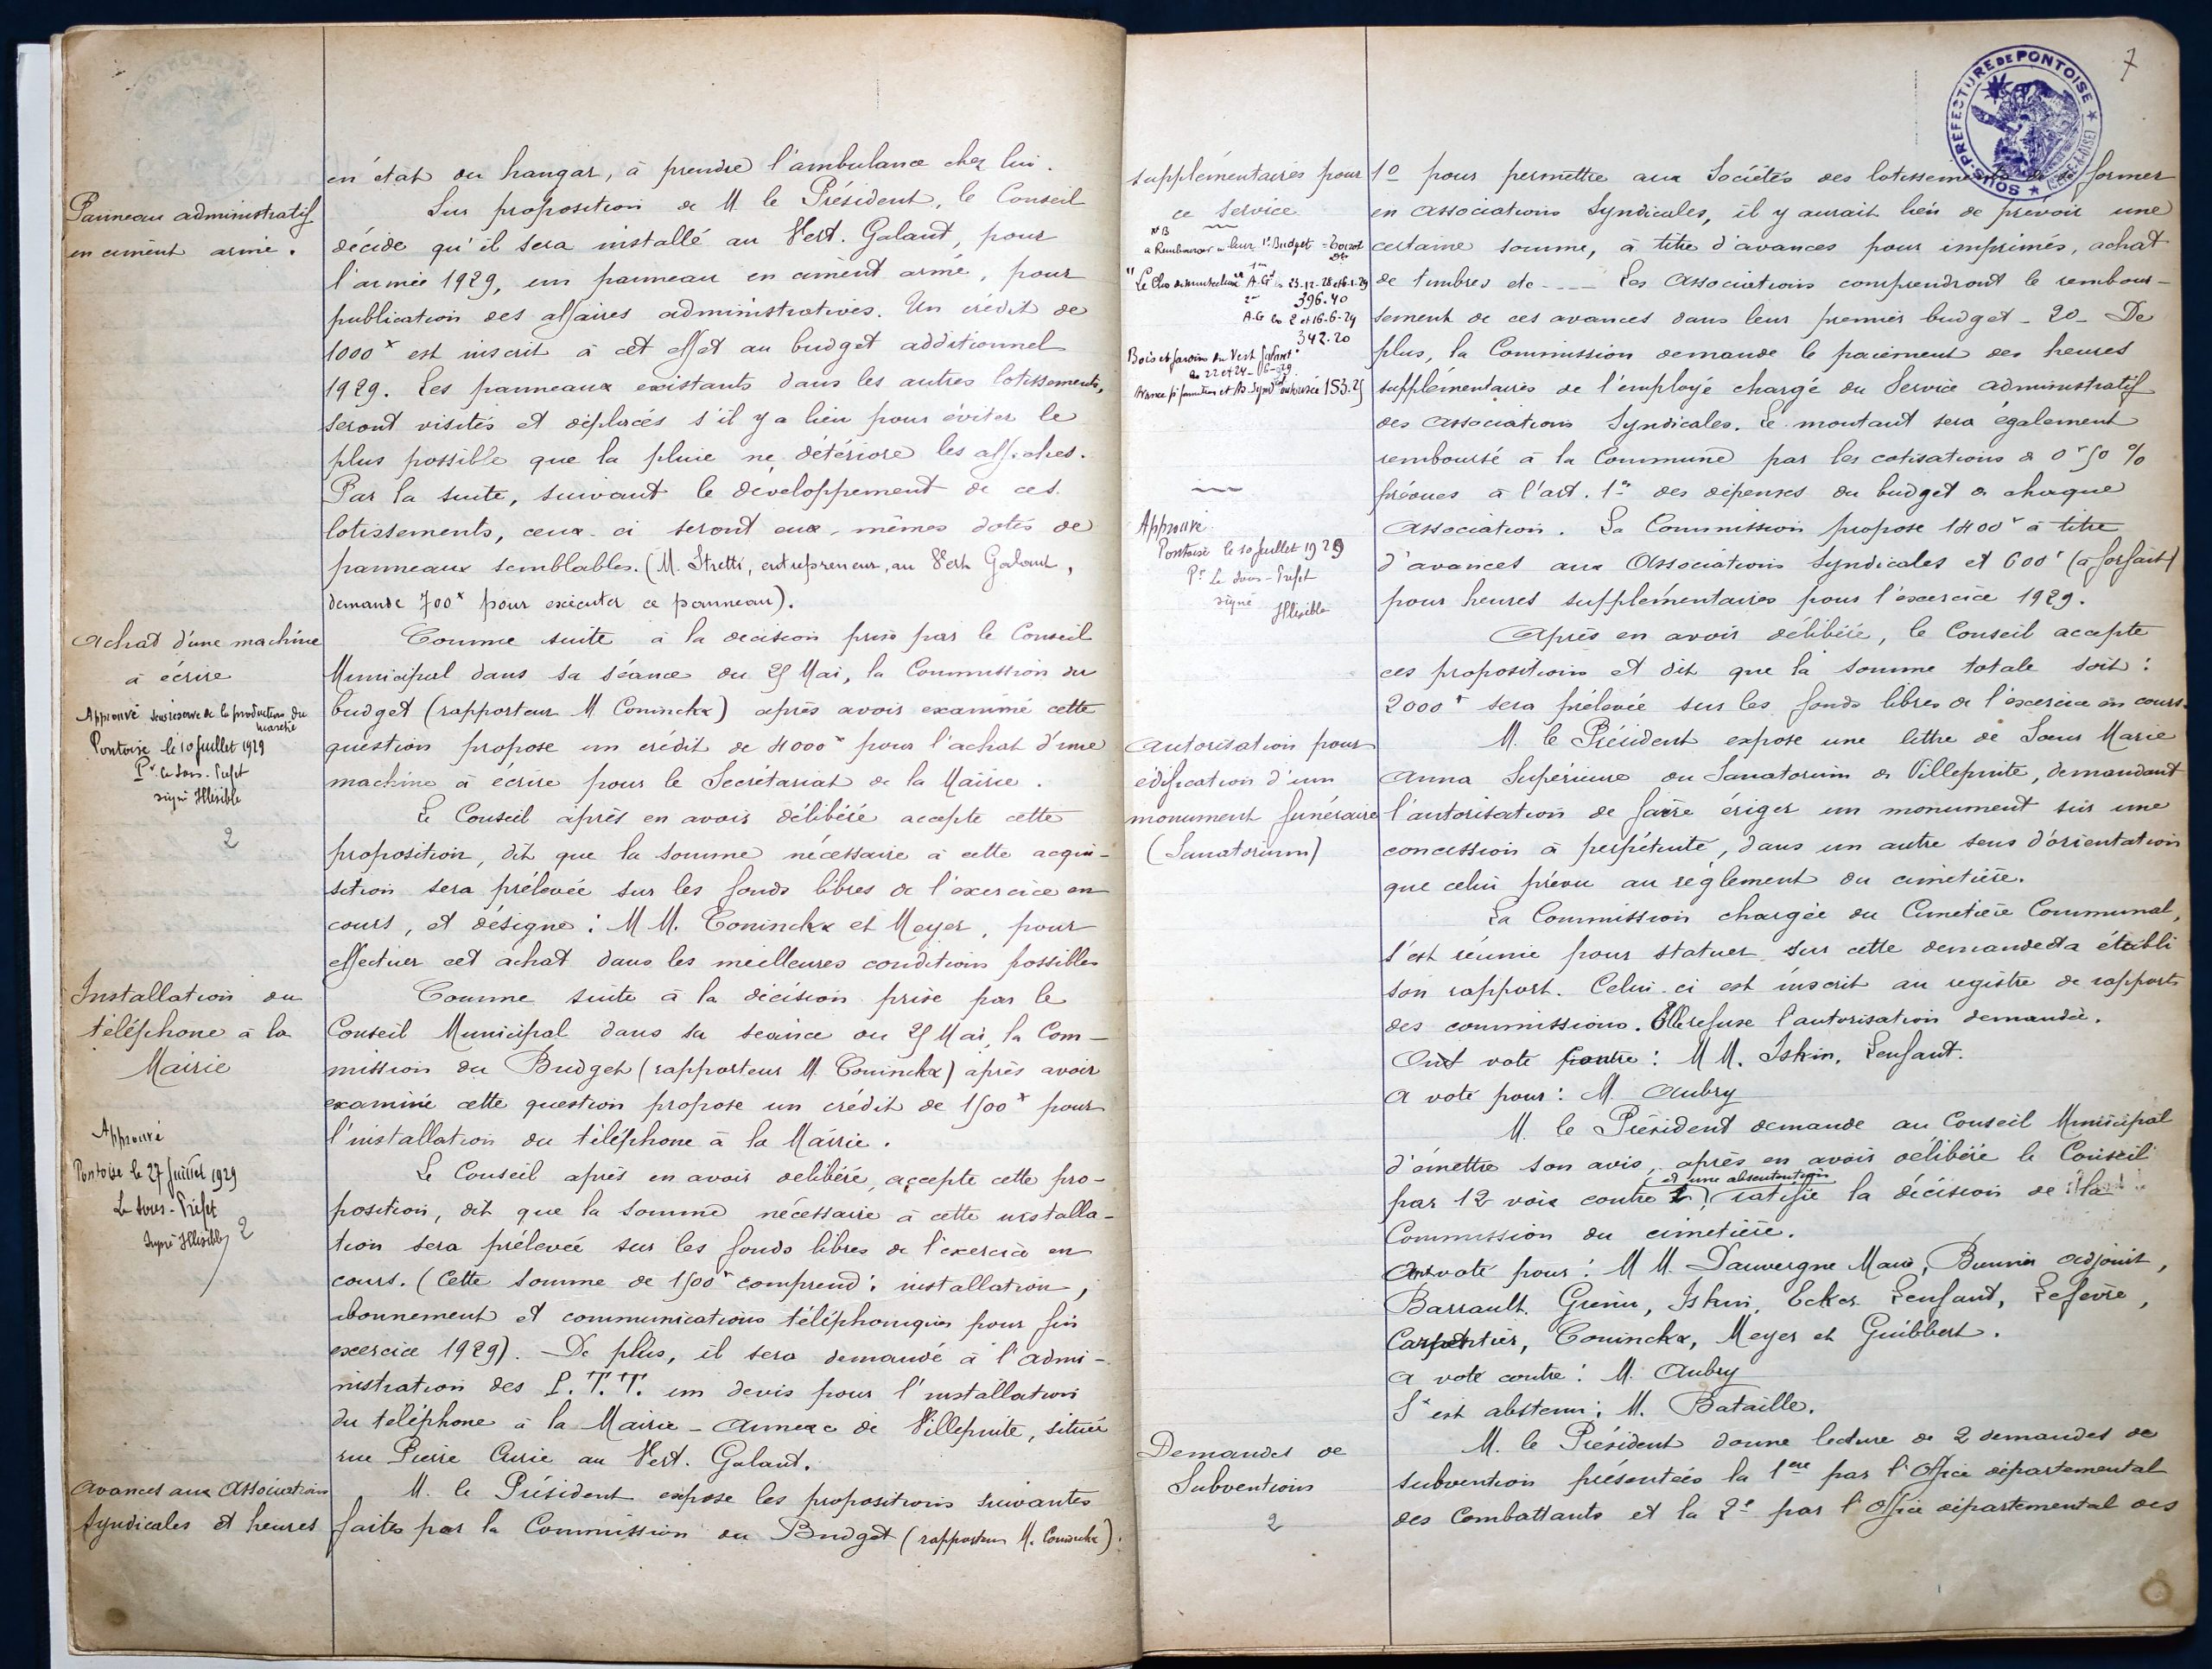 en état du hangar, à prendre l'ambulance chez lui.
Panneau administratif
en ciment armé.
Sur proposition de M. le Président, le Conseil
décide qu'il sera installé au Vert-Galant, pour
l'année 1929, un panneau en ciment armé, pour
publication des affaires administratives. Un crédit de
1000 f est inscrit à cet effet au budget additionnel
1929. Les panneaux existants dans les autres lotissements,
seront visités et déplacés s'il y a lieu pour éviter le
plus possible que la pluie ne détériore les affiches.
Par la suite, suivant le développement de ces
lotissements, ceux-ci seront eux-mêmes dotés de
panneaux semblables. (M. Stretti, entrepreneur, au Vert Galant,
demande 700 f pour exécuter ce panneau).
Achat d'une machine
à écrire
Approuvé sous réserve de la production du
marché
Pontoise le 10 Juillet 1929
Pr le Sous-Préfet
signé Illisible
2
Comme suite à la décision prise par le Conseil
Municipal dans sa séance du 25 Mai, la Commission du
budget (rapporteur M. Coninckx) après avoir examiné cette
question propose un crédit de 4000 f pour l'achat d'une
machine à écrire pour le Secrétariat de la Mairie.
Le Conseil après en avoir délibéré accepte cette
proposition, dit que la somme nécessaire à cette acqui-
sition sera prélevée sur les fonds libres de l'exercice en
cours, et désigne : M M. Coninckx et Meyer, pour
effectuer cet achat dans les meilleures conditions possibles
Installation du
téléphone à la
Mairie
Approuvé
Pontoise le 27 Juillet 1929
Le Sous-Préfet
Signé Illisible
2
Comme suite à la décision prise par le
Conseil Municipal dans sa séance du 25 Mai, la Com-
mission du Budget (rapporteur M. Coninckx) après avoir
examiné cette question propose un crédit de 1500 f pour
l'installation du téléphone à la Mairie.
Le Conseil après en avoir délibéré, accepte cette pro-
position, dit que la somme nécessaire à cette installa-
tion sera prélevée sur les fonds libres de l'exercice en
cours. (Cette somme de 1500 f comprend : installation,
abonnement et communications téléphoniques pour fin
exercice 1929). De plus, il sera demandé à l'admi-
nistration des P.T.T. un devis pour l'installation
du téléphone à la Mairie-Annexe de Villepinte, située
rue Pierre Curie au Vert-Galant.
Avances aux Associations
Syndicales et heures
M. le Président expose les propositions suivantes
faites par la Commission du Budget (rapporteur M. Coninckx) :
7
SOUS-PREFECTURE DE PONTOISE
(SEINE-&-OISE)
supplémentaires pour
ce Service
NB
à Rembourser en leur 1er Budget
A.G. 23-12-28 et 6-1-29
396.40
A.G. 2 et 16-6-29
342.20
Bois et Jardins du Vert Galant
22 et 24-6-29
153.25
Approuvé
Pontoise le 10 Juillet 1929
Pr le Sous-Préfet
signé Illisible
1o pour permettre aux Sociétés des lotissements de se former
en Associations Syndicales, il y aurait lieu de prévoir une
certaine somme, à titre d'avances pour imprimés, achat
de timbres etc---- Les Associations comprendront le rembour-
sement de ces avances dans leur premier budget - 2o - De
plus, la Commission demande le paiement des heures
supplémentaires de l'employé chargé du Service administratif
des Associations Syndicales. Le montant sera également
remboursé à la Commune par les cotisations de 0 f 50 %
prévues à l'art. 1er des dépenses du budget de chaque
Association. La Commission propose 1400 f à titre
d'avances aux Associations Syndicales et 600 f (à forfait)
pour heures supplémentaires pour l'exercice 1929.
Après en avoir délibéré, le Conseil accepte
ces propositions et dit que la somme totale soit :
2000 f sera prélevée sur les fonds libres de l'exercice en cours.
Autorisation pour
édification d'un
monument funéraire
(Sanatorium)
M. le Président expose une lettre de Soeur Marie
Anna Supérieure du Sanatorium de Villepinte, demandant
l'autorisation de faire ériger un monument sur une
concession à perpétuité, dans un autre sens d'orientation
que celui prévu au règlement du cimetière.
La Commission chargée du Cimetière Communal,
s'est réunie pour statuer sur cette demande et a établi
son rapport. Celui-ci est inscrit au registre de rapports
des commissions. Elle refuse l'autorisation demandée.
Ont voté contre : M M. Iskin, Lenfant.
A voté pour : M. Aubry
M. le Président demande au Conseil Municipal
d'émettre son avis, après en avoir délibéré le Conseil
par 12 voix contre 1, (et une abstention) ratifie la décision de la
Commission du cimetière.
Ont voté pour : M M. Dauvergne Maire, Bunier adjoint,
Barrault, Grenin, Iskin, Ecker, Lenfant, Lefèvre,
Carpentier, Coninckx, Meyer et Guibbert.
A voté contre : M. Aubry
S'est abstenu : M. Bataille.
Demandes de
Subventions
2
M. le Président donne lecture de 2 demandes de
subvention présentées la 1ère par l'Office départemental
des Combattants et la 2e par l'Office départemental des